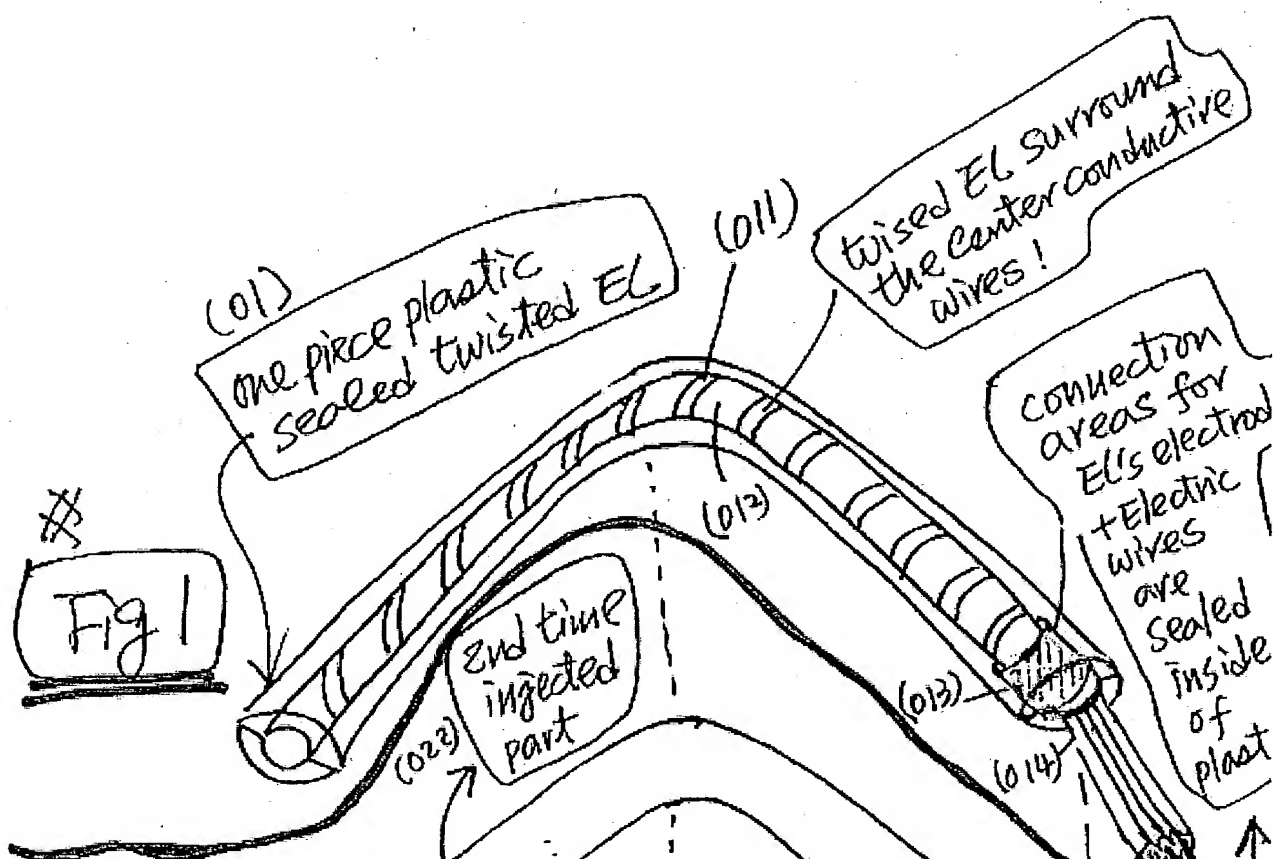 (01)
one piece plastic
sealed twisted EL
(011)
twised EL surround
the center conductive
wires!
(012)
connection
areas for
EL's electrod
+Electric
wires
are
sealed
inside
of
plast
Fig 1
2nd time
injected
part
(022)
(013)
(014)